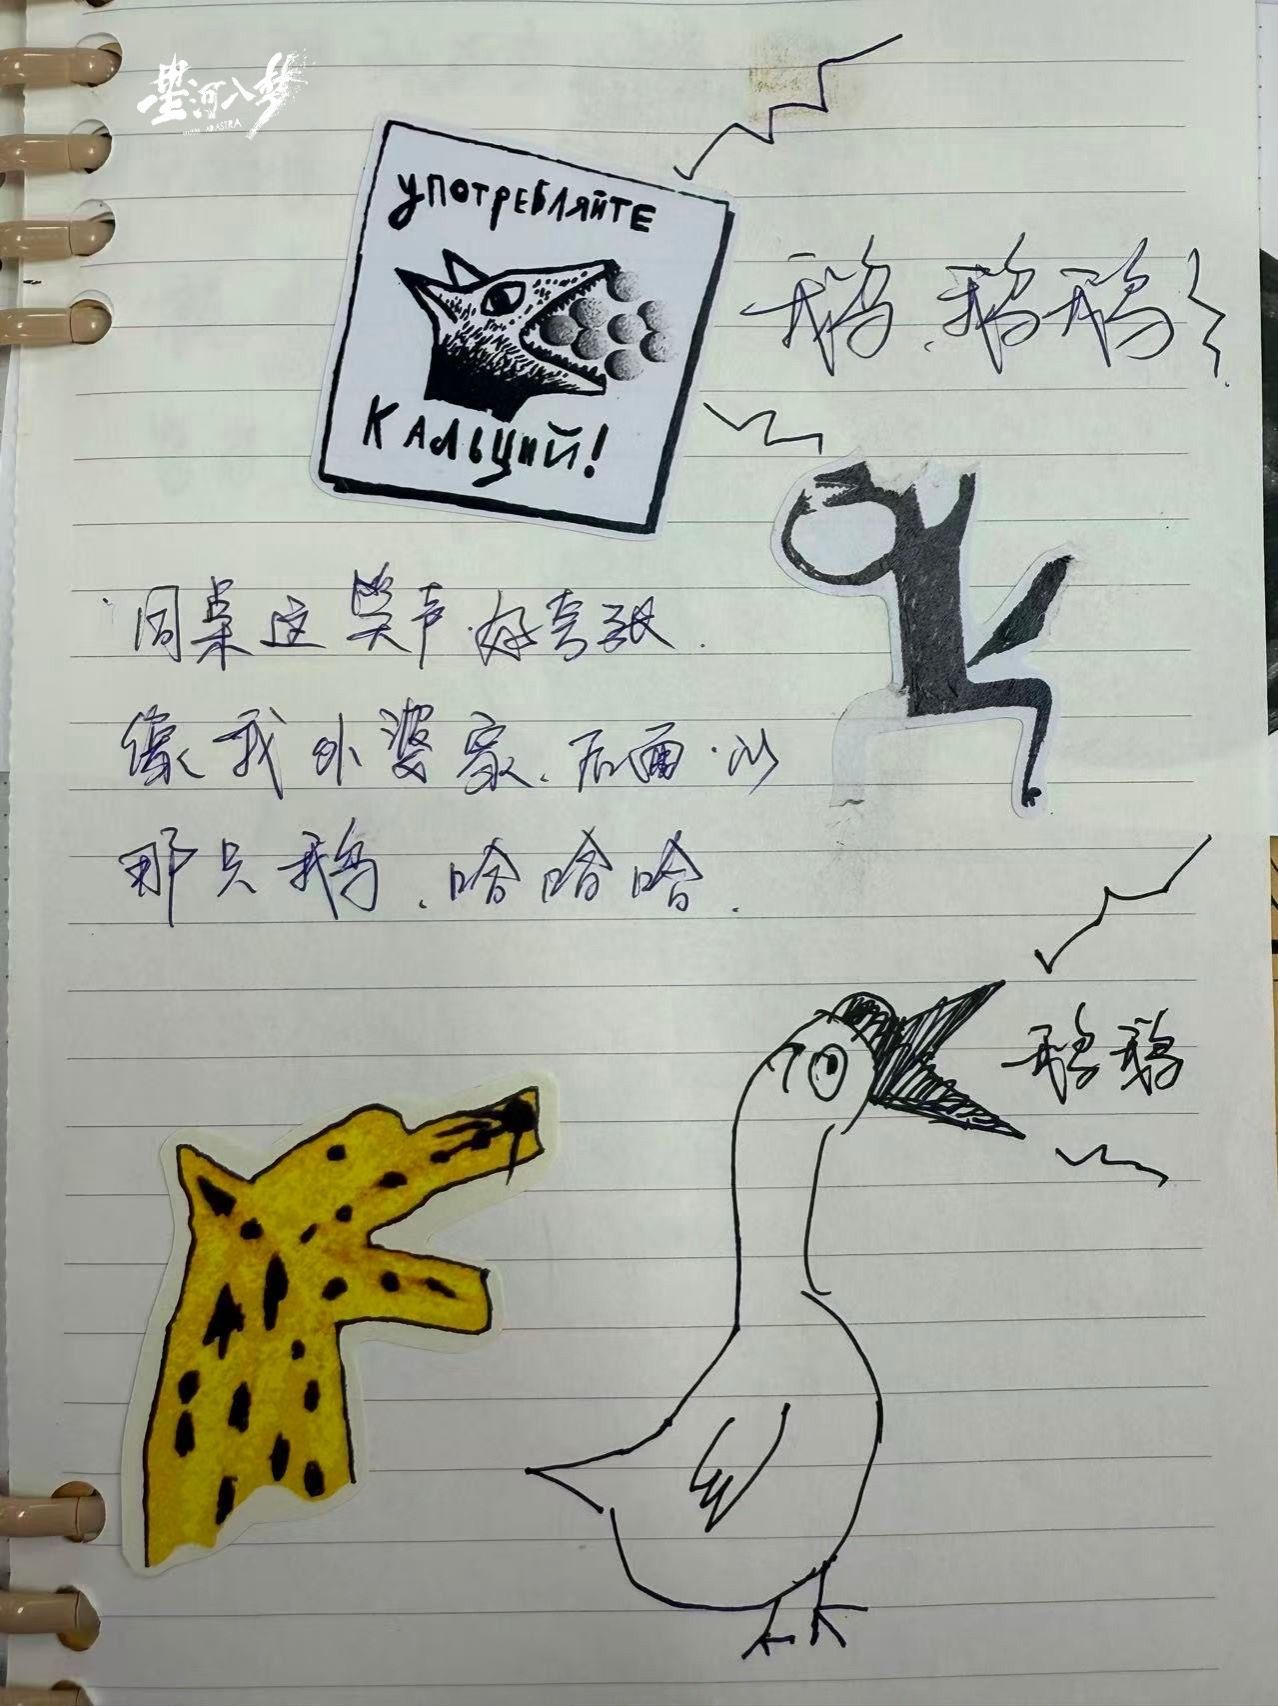 星河入梦
AD ASTRA
УПОТРЕБЛЯЙТЕ
КАЛЬЦИЙ!
鹅、鹅鹅!
同桌这笑声好夸张.
像我外婆家、后面山
那只鹅、哈哈哈.
鹅鹅